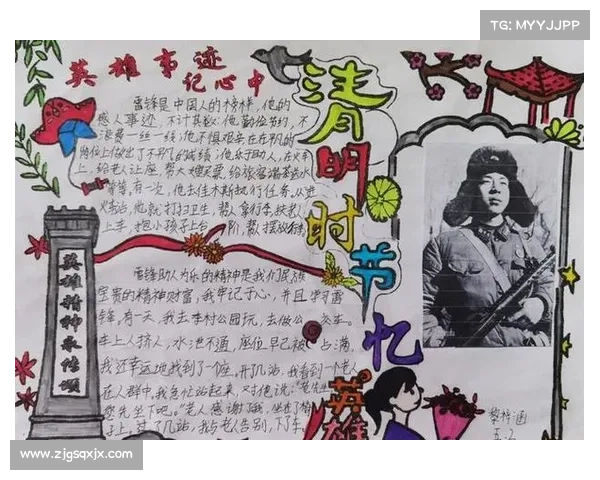 TG: MYYJJPP
英雄事迹
记心中
清明时节忆英雄
雷锋是中国人的榜样,他的
感人事迹,不计其数:他勤俭节约,不
浪费一丝一线;他不惧艰苦在在平凡的
岗位上做出了不平凡的成绩;他乐于助人,在火车
上,给老人让座,帮大嫂买票,给旅客端茶送水
有一次,他去佳木斯执行任务。从进
火车站,他就打扫卫生,帮人拿行李,扶老人
上车,抱小孩子上台阶,帮人摆放
雷锋助人为乐的精神是我们民族
宝贵的精神财富,我牢记于心,并且学习雷
锋。有一天,我去李村公园玩,去做公交车。
车上人挤人,水泄不通,座位早已被占满,
我还幸运地找到了一座。开几站,我看到一个老人
在人群中。我急忙站起来,对他说:“老先生
您先坐下吧。”老人感谢了我,坐在了椅
子上,过了几站,我与老人告别,下了车。
英雄精神永传颂
黎梓涵
五.2
www.zjgsqxjx.com